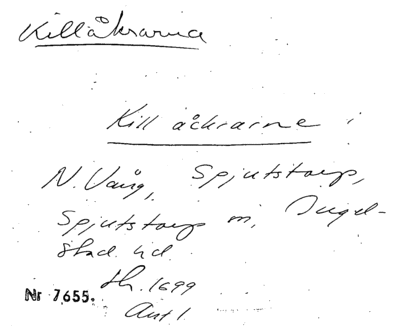 Killåkrarna
Kill åckrarne i
N. Vång, Spjutstorp,
Spjutstorp sn, Ingel-
stad hd
Lh. 1699
Ant 1.
Nr 7655.